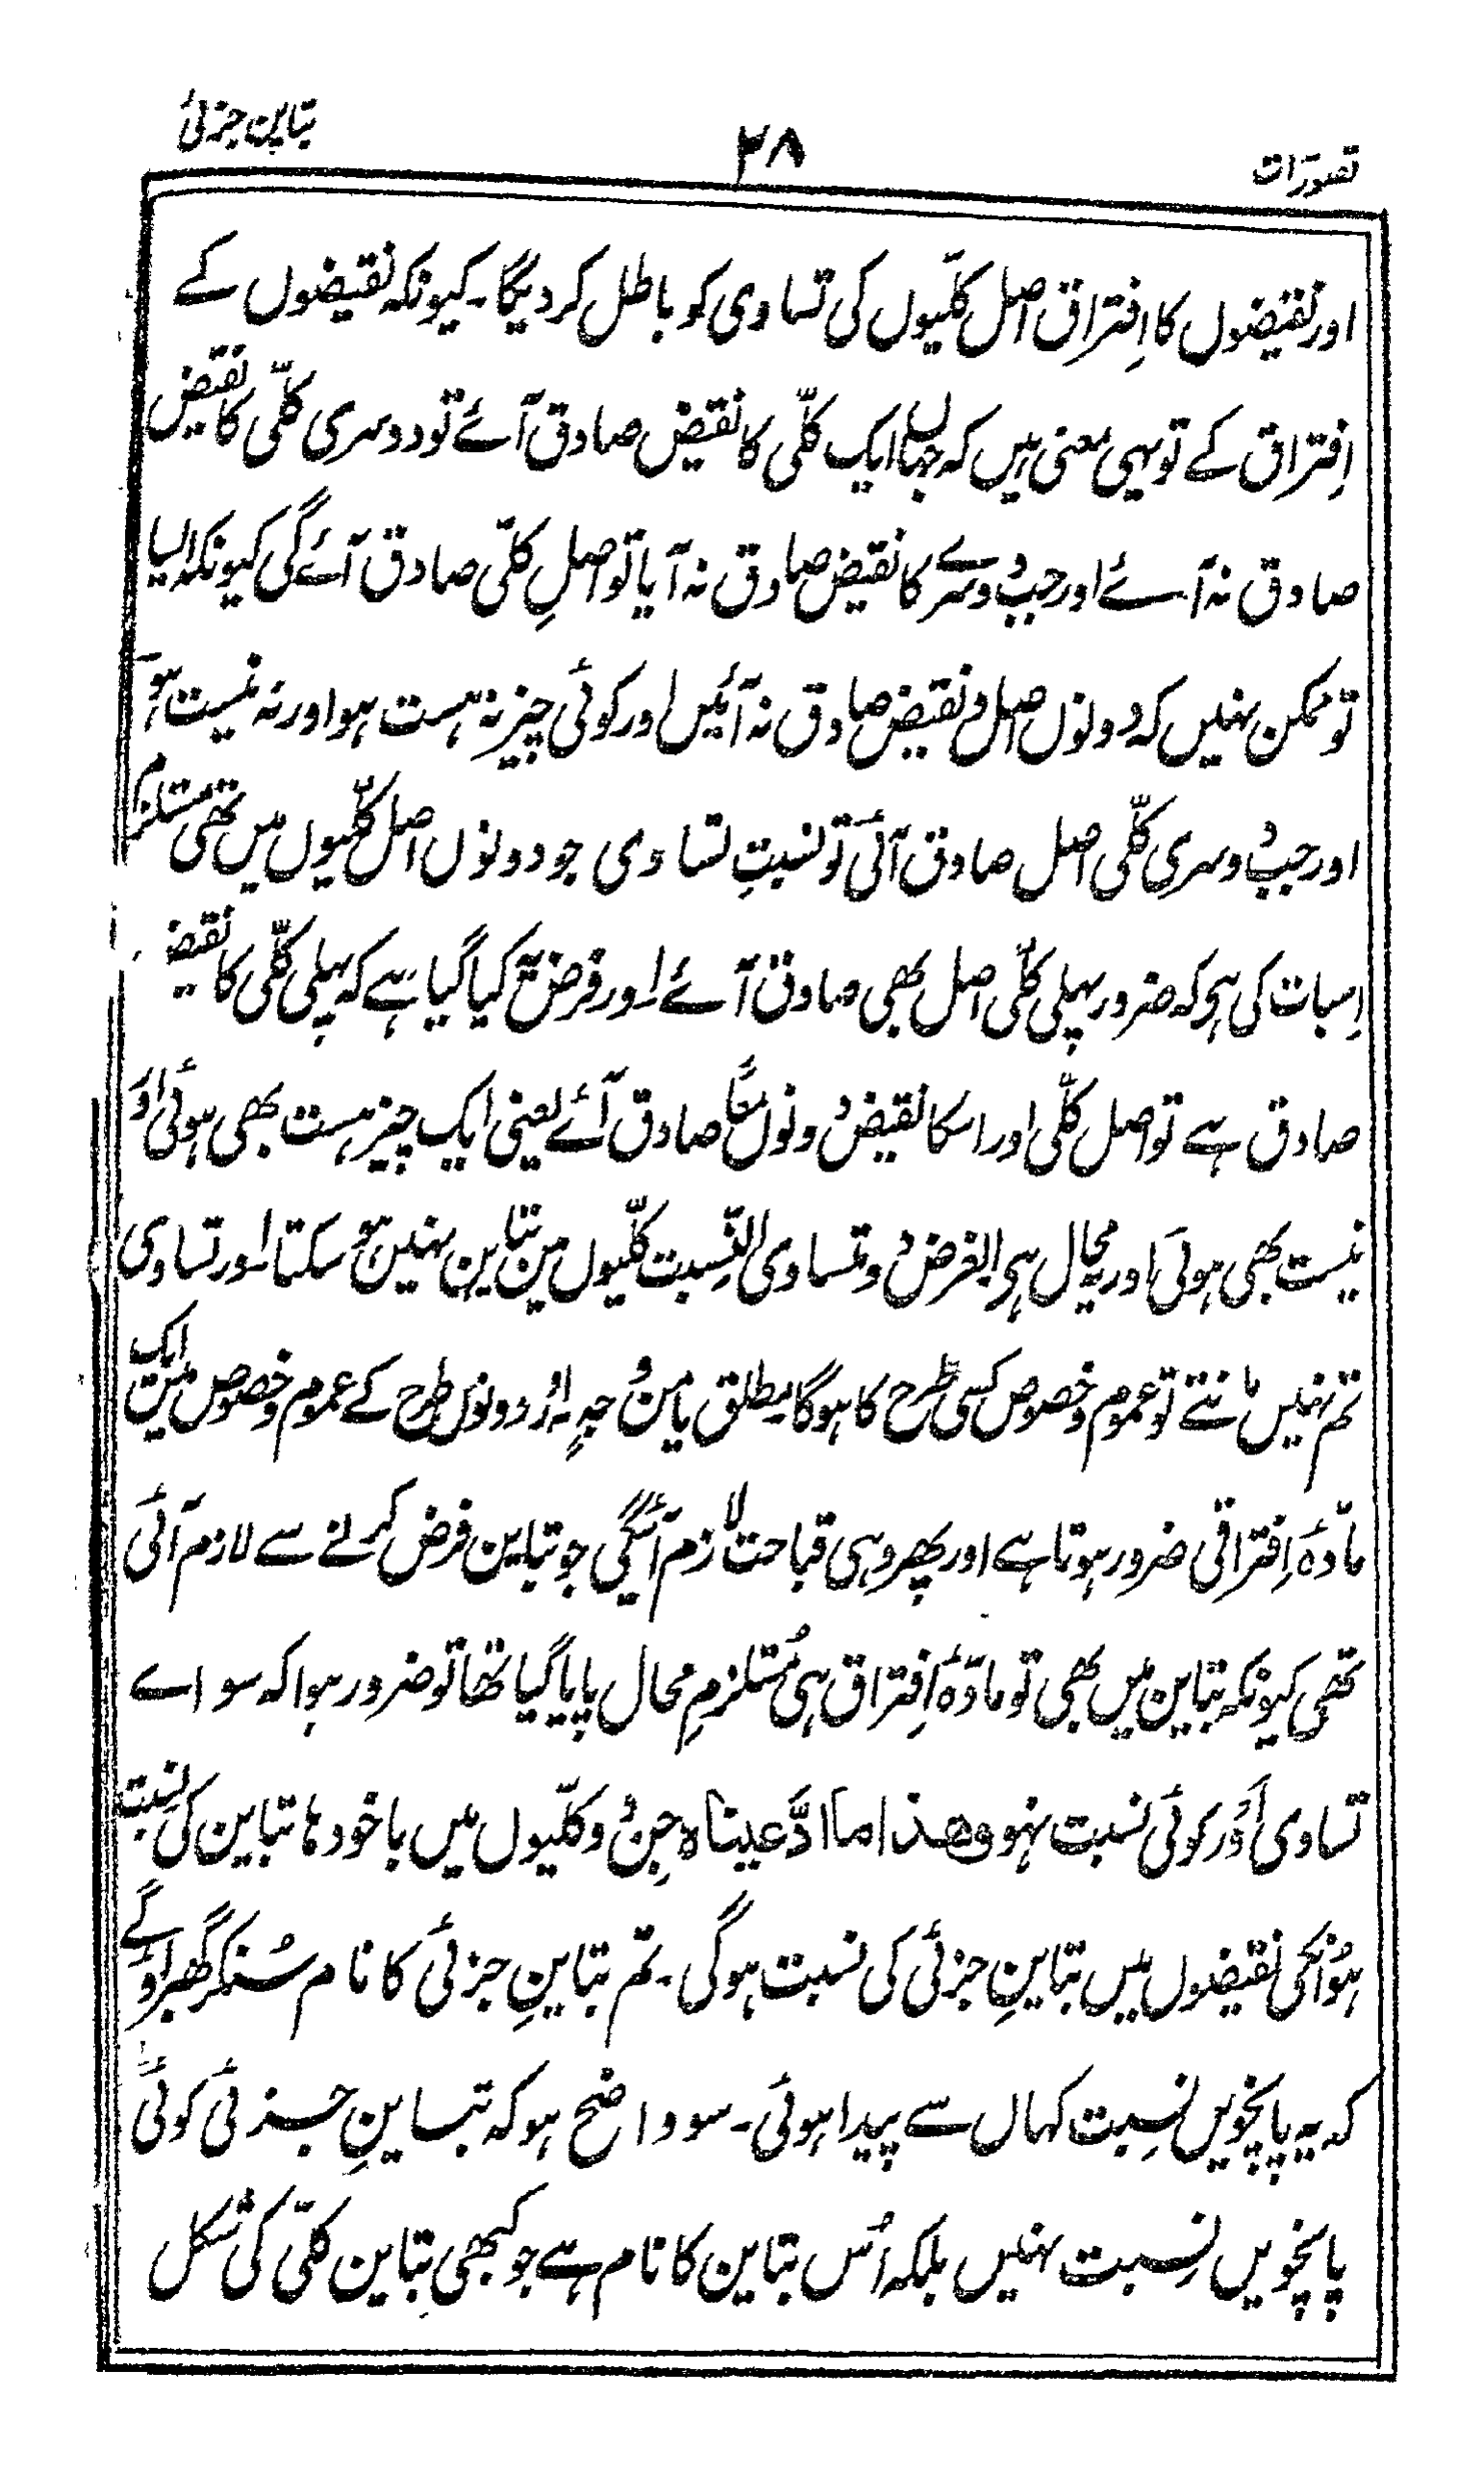 تصوّرات
۲۸
تباین جزئی
اور نقیضوں کا اِفتراق اصل کلّیوں کی تساوی کو باطل کر دیگا۔ کیونکہ نقیضوں کے
اِفتراق کے تو یہی معنی ہیں کہ جہاں ایک کلّی کا نقیض صادق آئے تو دوسری کلّی کا نقیض
صادق نہ آئے اور جب دوسرے کا نقیض صادق نہ آیا تو اصلِ کلّی صادق آئے گی کیونکہ ایسا
تو ممکن نہیں کہ دونوں اصل و نقیض صادق نہ آئیں اور کوئی چیز نہ ہست ہو اور نہ نیست ہو
اور جب دوسری کلّی اصل صادق آئی تو نسبتِ تساوی جو دونوں اصل کلّیوں میں تھی مستلزم
اِسبات کی ہی کہ ضرور پہلی کلّی اصل بھی صادق آئے اور فرض یہ کیا گیا ہے کہ پہلی کلّی کا نقیض
صادق ہے تو اصل کلّی اور اسکا نقیض دونوں معًا صادق آئے یعنی ایک چیز ہست بھی ہوئی اور
نیست بھی ہوئی اور یہ محال ہی الغرض دو متساوی النّسبت کلّیوں میں تباین نہیں ہو سکتا اور تساوی
تم نہیں مانتے تو عموم و خصوص کسی طرح کا ہوگا مطلق یا من وجہٍ اور دونوں طرح کے عموم و خصوص میں ایک
مادّۂ اِفتراقی ضرور ہوتا ہے اور پھر وہی قباحت لازم آئیگی جو تباین فرض کرنے سے لازم آئی
تھی کیونکہ تباین میں بھی تو مادّۂ اِفتراق ہی مُستلزمِ محال پایا گیا تھا تو ضرور ہوا کہ سواے
تساوی اَور کوئی نسبت نہو وھذا ما ادَّعیناہ جن دو کلّیوں میں باخودہا تباین کی نسبت
ہو اُنکی نقیضوں میں تباینِ جزئی کی نسبت ہوگی۔ تم تباینِ جزئی کا نام سُنکر گھبراؤ گے
کہ یہ پانچویں نِسبت کہاں سے پیدا ہوئی۔ سو واضح ہو کہ تباینِ جزئی کوئی
پانچویں نِسبت نہیں بلکہ اُس تباین کا نام ہے جو کبھی تباین کلّی کی شکل